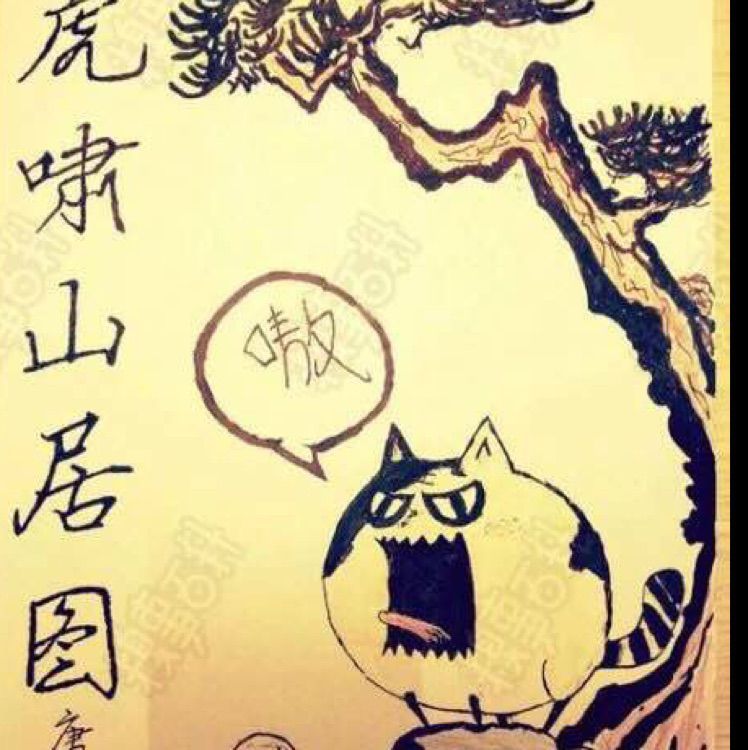 虎啸山居图
唐
嗷